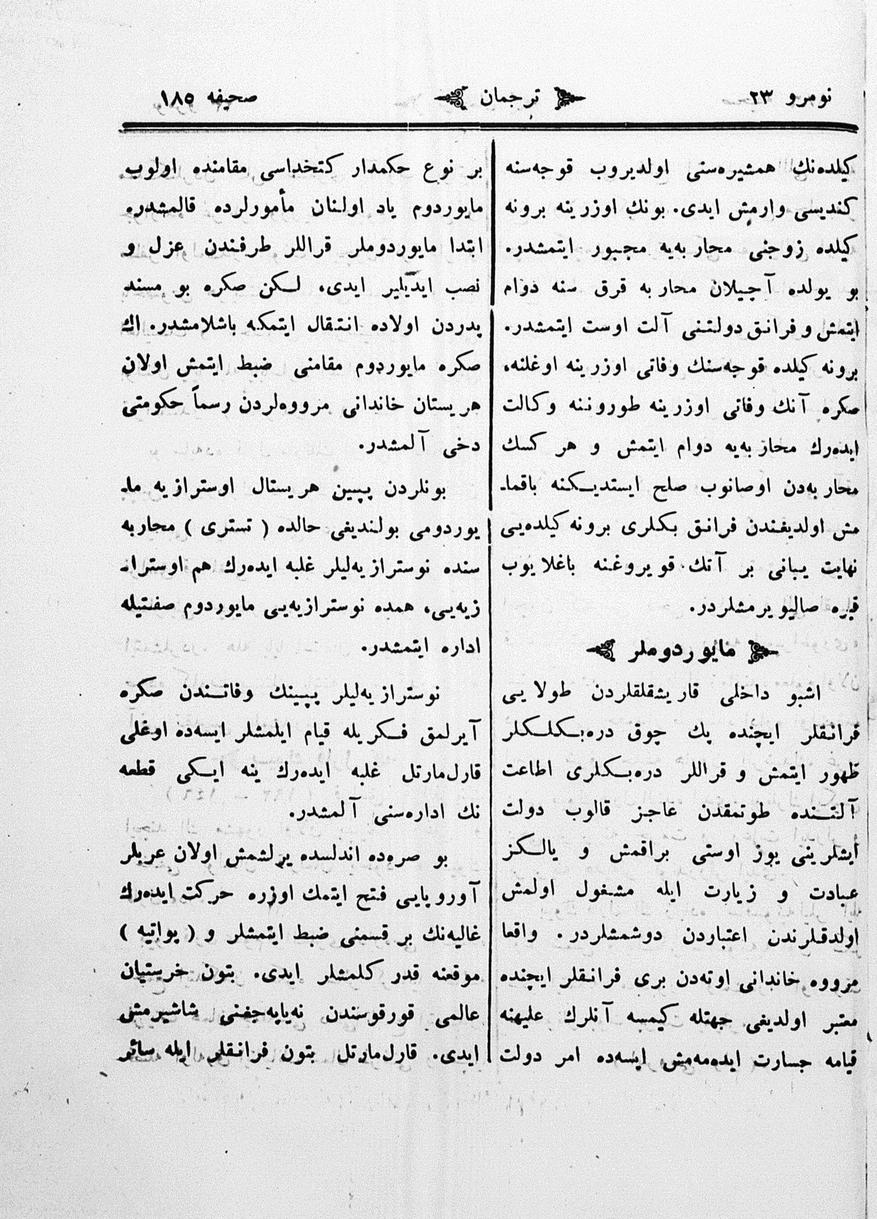 نومرو ٢٣
ترجمان
صحيفه ١٨٥
كيلده‌نك همشيره‌سنی اولديروب قوجه‌سنه
كنديسی وارمش ايدی. بونك اوزرينه برونه
كيلده زوجنی محاربه‌يه مجبور ايتمشدر.
بو يولده آچيلان محاربه قرق سنه دوام
ايتمش و فرانق دولتنی آلت اوست ايتمشدر.
برونه كيلده قوجه‌سنك وفاتی اوزرينه اوغلنه،
صكره آنك وفاتی اوزرينه طوروننه وكالت
ايده‌رك محاربه‌يه دوام ايتمش و هر كسك
محاربه‌دن اوصانوب صلح ايستديكنه باقما‌ـ
مش اولديغندن فرانق بكلری برونه كيلده‌يی
نهايت يبانی بر آتك قويروغنه باغلايوب
قيره صاليويرمشلردر.
مايوردوملر
اشبو داخلی قاريشقلقلردن طولايی
فرانقلر ايچنده پك چوق دره‌بكلكلر
ظهور ايتمش و قراللر دره‌بكلری اطاعت
آلتنده طوتمقدن عاجز قالوب دولت
ايشلرينی يوز اوستی براقمش و يالكز
عبادت و زيارت ايله مشغول اولمش
اولدقلرندن اعتباردن دوشمشلردر. واقعا
مرووه خاندانی اوته‌دن بری فرانقلر ايچنده
معتبر اولديغی جهتله كيمسه آنلرك عليهنه
قيامه جسارت ايده‌مه‌مش ايسه‌ده امر دولت
بر نوع حكمدار كتخداسی مقامنده اولوب
مايوردوم ياد اولنان مأمورلرده قالمشدر.
ابتدا مايوردوملر قراللر طرفندن عزل و
نصب ايديلير ايدی، لكن صكره بو مسند
پدردن اولاده انتقال ايتمكه باشلامشدر. اك
صكره مايوردوم مقامنی ضبط ايتمش اولان
هريستان خاندانی مرووه‌لردن رسماً حكومتی
دخی آلمشدر.
بونلردن پپين هريستال اوسترازيه ما‌ـ
يوردومی بولنديغی حالده ( تستری ) محاربه
سنده نوسترازيه‌ليلر غلبه ايده‌رك هم اوسترا‌ـ
زيه‌يی، همده نوسترازيه‌يی مايوردوم صفتيله
اداره ايتمشدر.
نوسترازيه‌ليلر پپينك وفاتندن صكره
آيرلمق فكريله قيام ايلمشلر ايسه‌ده اوغلی
قارل‌مارتل غلبه ايده‌رك ينه ايكی قطعه
نك اداره‌سنی آلمشدر.
بو صره‌ده اندلسده يرلشمش اولان عربلر
آوروپايی فتح ايتمك اوزره حركت ايده‌رك
غاليه‌نك بر قسمنی ضبط ايتمشلر و ( پواتيه )
موقعنه قدر كلمشلر ايدی. بتون خرستيان
عالمی قورقوسندن نه‌ياپه‌جغنی شاشيرمش
ايدی. قارل‌مارتل بتون فرانقلر ايله سائر